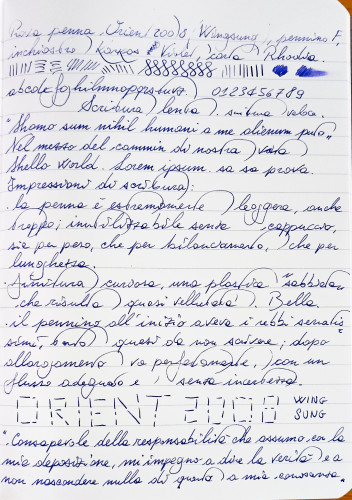 Prova penna Orient 2008, Wingsung, pennino F,
inchiostro Kaweco Violet, carta Rhodia.
abcdefghilmnopqrstuvz 0123456789
Scrittura lenta. scrittura veloce.
"Homo sum nihil humani a me alienum puto"
Nel mezzo del cammin di nostra vita
Hello World. Lorem ipsum. sa sa prova.
Impressioni di scrittura:
. la penna è estremamente leggera, anche
troppo; inutilizzabile senza cappuccio,
sia per peso, che per bilanciamento, che per
lunghezza.
. finitura curiosa, una plastica "sabbiata"
che risulta quasi vellutata. Bella.
. il pennino all'inizio aveva i rebbi serratis
simi, tanto quasi da non scrivere; dopo
allargamento va perfettamente, con un
flusso adeguato e senza incertezze.
ORIENT 2008 WING
SUNG
"Consapevole della responsabilità che assumo con la
mia deposizione, mi impegno a dire la verità e a
non nascondere nulla di quanto a mia conoscenza"